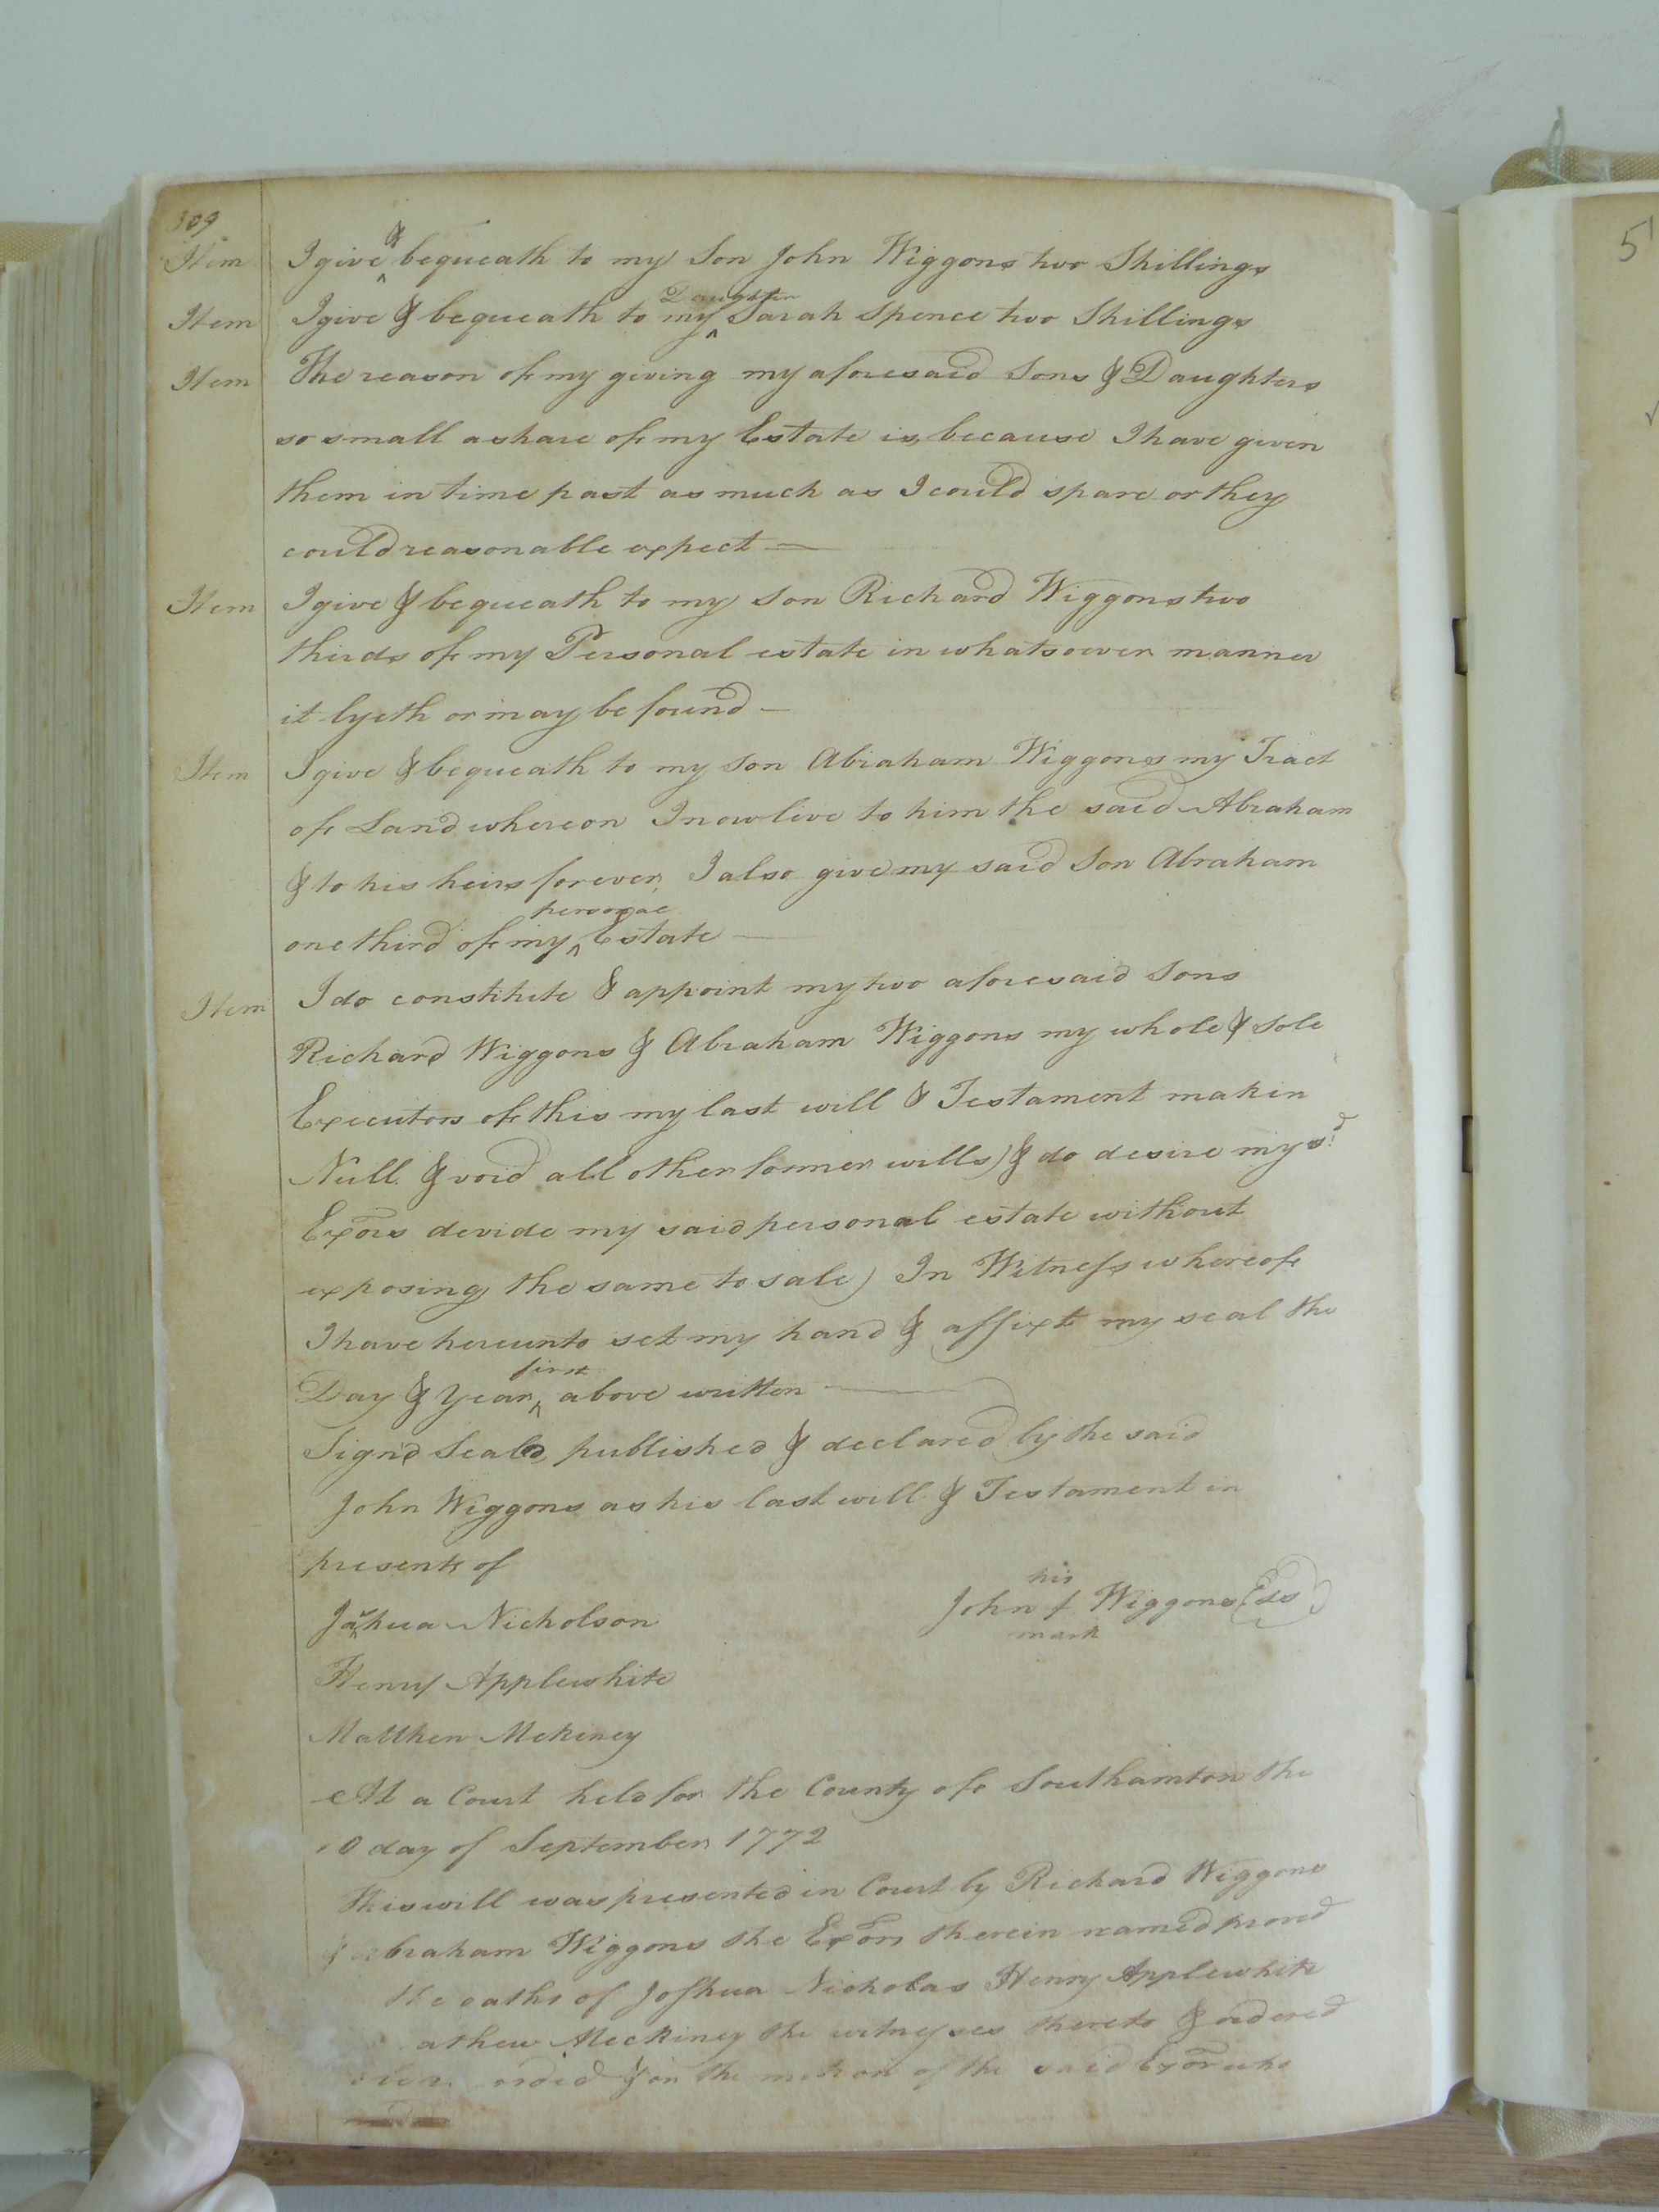 309
Item I give & bequeath to my Son John Wiggons two Shillings
Item I give & bequeath to my Daughter Sarah Spence two Shillings
Item The reason of my giving my aforesaid Sons & Daughters
so small a share of my Estate is, because I have given
them in time past as much as I could spare or they
could reasonable expect —
Item I give & bequeath to my Son Richard Wiggons two
thirds of my Personal estate in whatsoever manner
it lyeth or may be found —
Item I give & bequeath to my Son Abraham Wiggons my Tract
of Land whereon I now live to him the said Abraham
& to his heirs forever, I also give my said Son Abraham
one third of my personal Estate —
Item I do constitute & appoint my two aforesaid Sons
Richard Wiggons & Abraham Wiggons my whole & Sole
Executors of this my last will & Testament makin
Null & void all other former wills) & do desire my sd
Exors devide my said personal estate without
exposing the same to sale) In Witness whereof
I have hereunto set my hand & affixt my seal the
Day & Year first above written —
Sign'd Seald, published & declared by the said
John Wiggons as his last will & Testament in
presents of
his
John + Wiggons
mark
Joshua Nicholson
Henry Applewhite
Matthew Mckiney
At a Court held for the County of Southamton the
10 day of September 1772
This will was presented in Court by Richard Wiggons
& Abraham Wiggons the Exors therein named proved
the oaths of Joshua Nicholas Henry Applewhite
athew Meckiney the witnesses thereto & ordered
orded & on the motion of the said Exors who
5